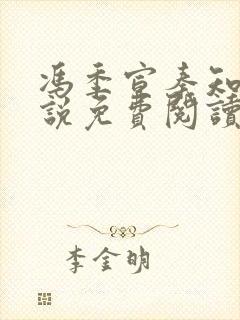 馮季宣秦知
說免費閱讀
李金明